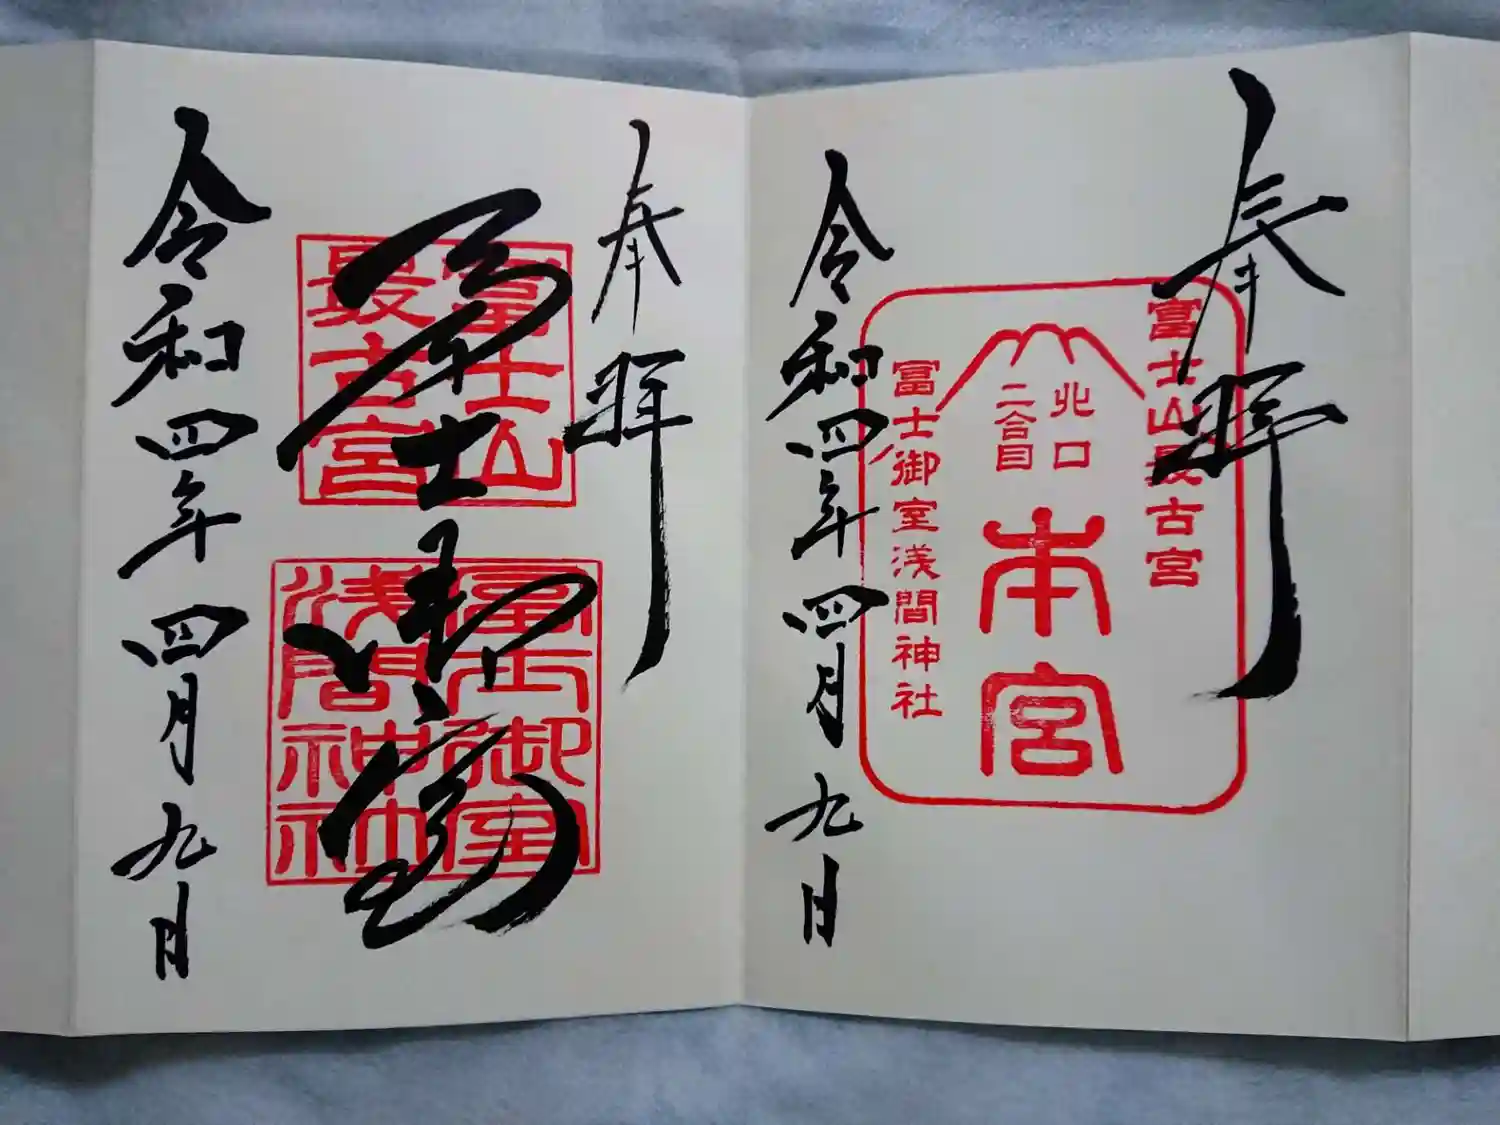 奉拝
富士山最古宮
北口
二合目
本宮
冨士御室浅間神社
令和四年四月九日
奉拝
冨士御室
富士山
最古宮
冨士御室
浅間神社
令和四年四月九日